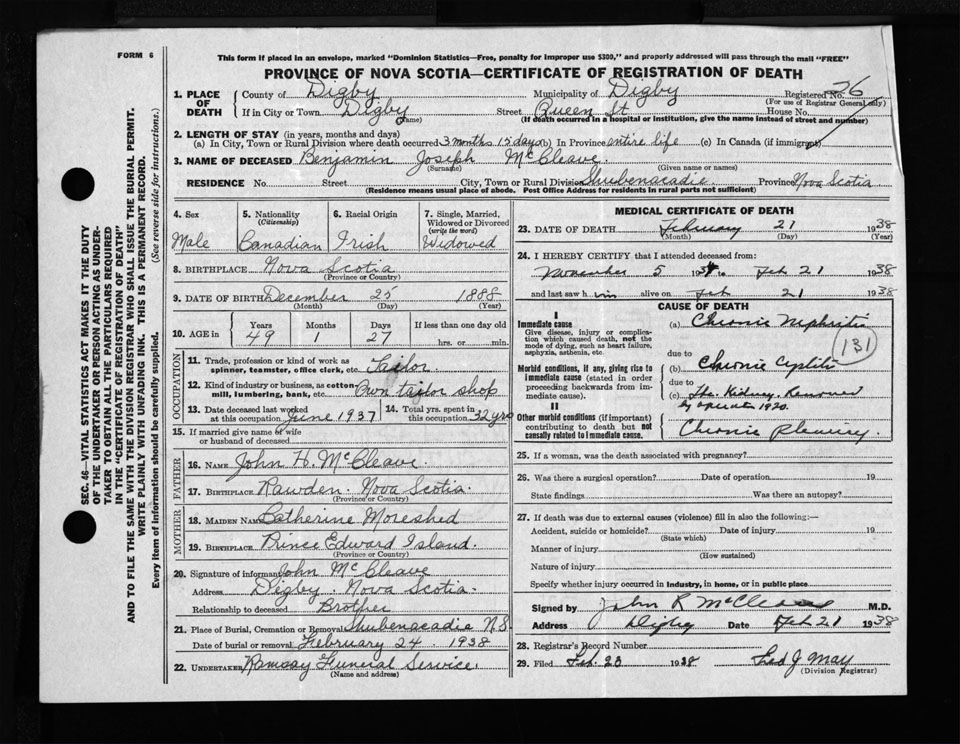 FORM 6
This form if placed in an envelope, marked "Dominion Statistics—Free, penalty for improper use $300," and properly addressed will pass through the mail "FREE"
PROVINCE OF NOVA SCOTIA—CERTIFICATE OF REGISTRATION OF DEATH
1. PLACE OF DEATH
County of Digby Municipality of Digby Registered No. 26
(For use of Registrar General only)
If in City or Town Digby Street Queen St House No.
(Name)
(If death occurred in a hospital or institution, give the name instead of street and number)
2. LENGTH OF STAY (in years, months and days)
(a) In City, Town or Rural Division where death occurred 3 months 15 days (b) In Province entire life (c) In Canada (if immigrant)
3. NAME OF DECEASED Benjamin Joseph McCleave
(Surname) (Given name or names)
RESIDENCE No. Street City, Town or Rural Division Shubenacadie Province Nova Scotia
(Residence means usual place of abode. Post Office Address for residents in rural parts not sufficient)
4. Sex Male
5. Nationality (Citizenship) Canadian
6. Racial Origin Irish
7. Single, Married, Widowed or Divorced (write the word) Widowed
8. BIRTHPLACE Nova Scotia
(Province or Country)
9. DATE OF BIRTH December 25 1888
(Month) (Day) (Year)
10. AGE in Years 49 Months 1 Days 27 If less than one day old
hrs. or min.
OCCUPATION
11. Trade, profession or kind of work as spinner, teamster, office clerk, etc. Tailor
12. Kind of industry or business, as cotton mill, lumbering, bank, etc. Own tailor shop
13. Date deceased last worked at this occupation June 1937
14. Total yrs. spent in this occupation 32 yrs
15. If married give name of wife or husband of deceased
FATHER
16. NAME John H. McCleave
17. BIRTHPLACE Rawden. Nova Scotia
(Province or Country)
MOTHER
18. MAIDEN NAME Catherine Moreshed
19. BIRTHPLACE Prince Edward Island.
(Province or Country)
20. Signature of informant John McCleave
Address Digby. Nova Scotia.
Relationship to deceased Brother
21. Place of Burial, Cremation or Removal Shubenacadie N.S.
Date of burial or removal February 24. 1938
22. UNDERTAKER Ramsay Funeral Service.
(Name and address)
MEDICAL CERTIFICATE OF DEATH
23. DATE OF DEATH February 21 1938
(Month) (Day) (Year)
24. I HEREBY CERTIFY that I attended deceased from:
November 5 19 to Feb 21 1938
and last saw him alive on Feb 21 1938
CAUSE OF DEATH
I
Immediate cause
Give disease, injury or complication which caused death, not the mode of dying, such as heart failure, asphyxia, asthenia, etc.
(a) Chronic Nephritis
131
due to
Morbid conditions, if any, giving rise to immediate cause (stated in order proceeding backwards from immediate cause).
(b) Chronic Cystitis
due to
(c) The Kidney Removed
by operation 1920.
II
Other morbid conditions (if important) contributing to death but not causally related to immediate cause.
Chronic Pleurisy
25. If a woman, was the death associated with pregnancy?
26. Was there a surgical operation? Date of operation 19
State findings Was there an autopsy?
27. If death was due to external causes (violence) fill in also the following:—
Accident, suicide or homicide? Date of injury 19
(State which)
Manner of injury
(How sustained)
Nature of injury
Specify whether injury occurred in industry, in home, or in public place
Signed by John R McCleave M.D.
Address Digby Date Feb 21 1938
28. Registrar's Record Number
29. Filed Feb. 23 1938 J. May
(Division Registrar)
SEC. 46—VITAL STATISTICS ACT MAKES IT THE DUTY
OF THE UNDERTAKER OR PERSON ACTING AS UNDERTAKER TO OBTAIN ALL THE PARTICULARS REQUIRED
IN THE "CERTIFICATE OF REGISTRATION OF DEATH"
AND TO FILE THE SAME WITH THE DIVISION REGISTRAR WHO SHALL ISSUE THE BURIAL PERMIT.
WRITE PLAINLY WITH UNFADING INK. THIS IS A PERMANENT RECORD.
Every item of Information should be carefully supplied. (See reverse side for instructions.)